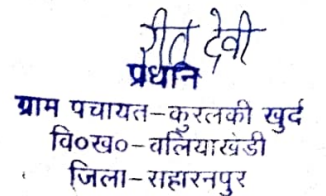 गीता देवी
प्रधान
ग्राम पंचायत-कुरलकी खुर्द
वि०ख०-बलियाखेडी
जिला-सहारनपुर